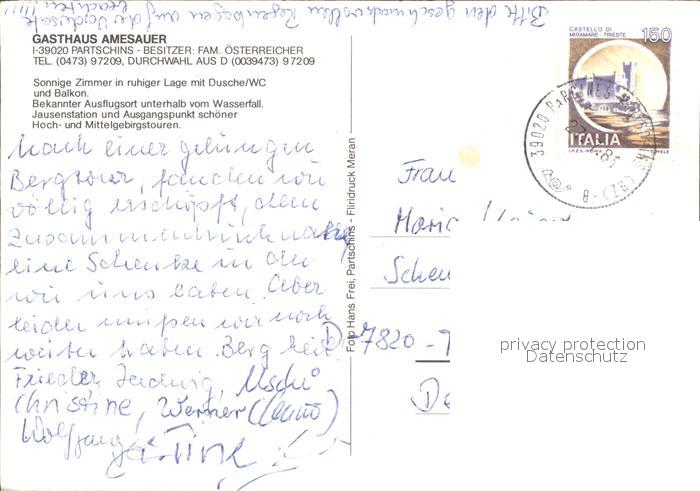 Bitte den geschmackvollen Regenbogen auf der Vorderseite
beachten !!!!
GASTHAUS AMESAUER
I-39020 PARTSCHINS - BESITZER: FAM. ÖSTERREICHER
TEL. (0473) 97209, DURCHWAHL AUS D (0039473) 97209
Sonnige Zimmer in ruhiger Lage mit Dusche/WC
und Balkon.
Bekannter Ausflugsort unterhalb vom Wasserfall.
Jausenstation und Ausgangspunkt schöner
Hoch- und Mittelgebirgstouren.
Nach einer gelungen
Bergtour, fanden wir
völlig erschöpft, dem
eine Schenke in der
wir uns laben. Aber
leider müßen wir noch
weiter traben. Berg heil
Frieder, Hedwig, Uschi
Christine, Werner
Wolfgang
Foto Hans Frei, Partschins - Fliridruck Meran
CASTELLO DI
MIRAMARE - TRIESTE
150
ITALIA
I.P.Z.S. - ROMA
39020
(BZ) - B
Frau
Maria
D-7820 -
privacy protection
Datenschutz